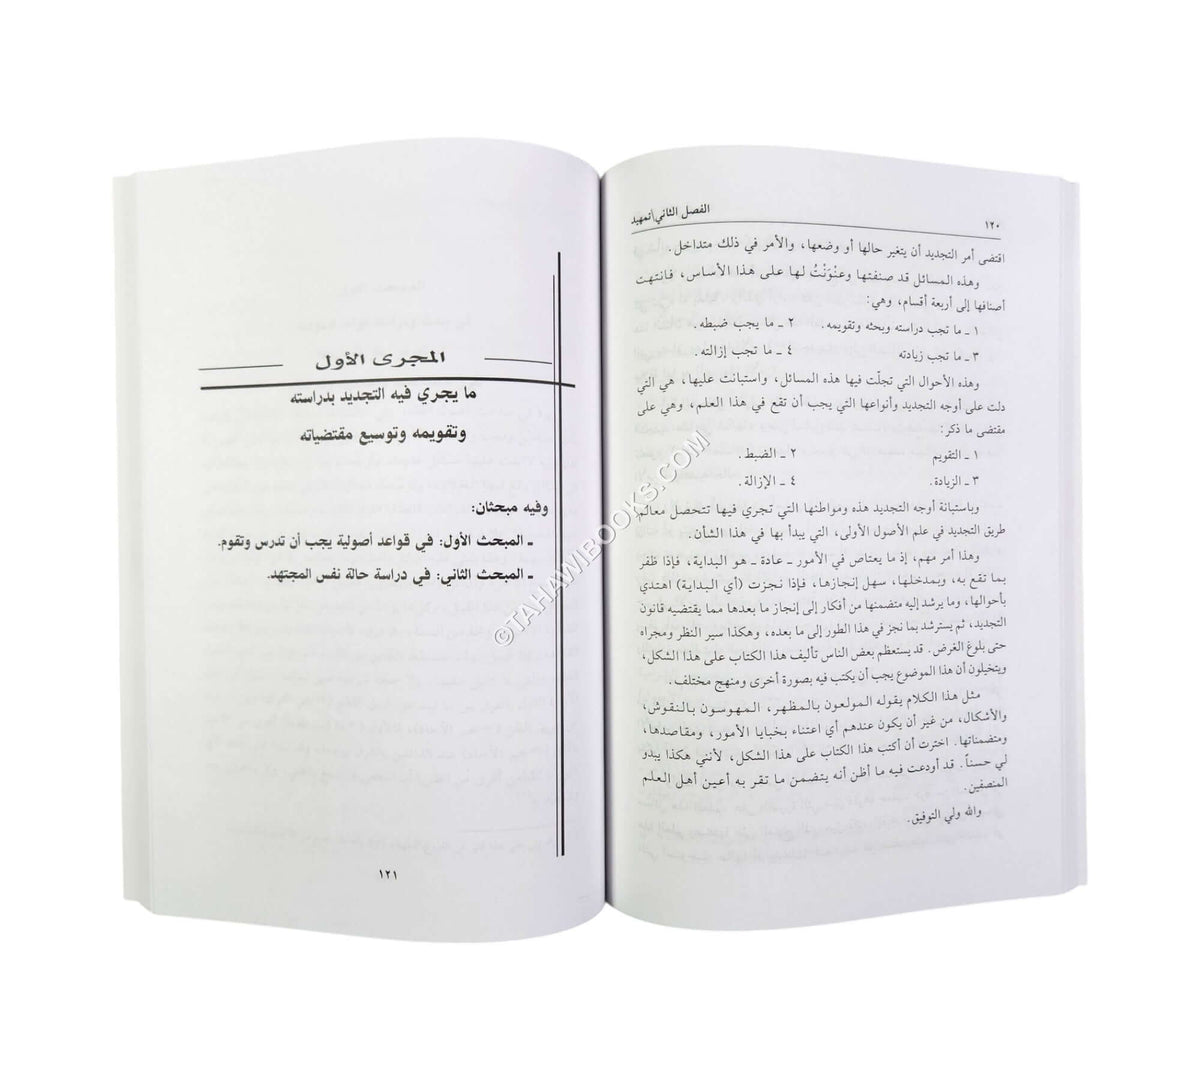 ١٢٠
الفصل الثاني/تمهيد
اقتضى أمر التجديد أن يتغير حالها أو وضعها، والأمر في ذلك متداخل.
وهذه المسائل قد صنفتها وعنْوَنْتُ لها على هذا الأساس، فانتهت
أصنافها إلى أربعة أقسام، وهي:
١ ـ ما تجب دراسته وبحثه وتقويمه. ٢ ـ ما يجب ضبطه.
٣ ـ ما تجب زيادته ٤ ـ ما تجب إزالته.
وهذه الأحوال التي تجلّت فيها هذه المسائل، واستبانت عليها، هي التي
دلت على أوجه التجديد وأنواعها التي يجب أن تقع في هذا العلم، وهي على
مقتضى ما ذكر:
١ ـ التقويم ٢ ـ الضبط.
٣ ـ الزيادة. ٤ ـ الإزالة.
وباستبانة أوجه التجديد هذه ومواطنها التي تجري فيها تتحصل معالم
طريق التجديد في علم الأصول الأولى، التي يبدأ بها في هذا الشأن.
وهذا أمر مهم، إذ ما يعتاص في الأمور ـ عادة ـ هو البداية، فإذا ظفر
بما تقع به، وبمدخلها، سهل إنجازها، فإذا نجزت (أي البداية) اهتدي
بأحوالها، وما يرشد إليه متضمنها من أفكار إلى إنجاز ما بعدها مما يقتضيه قانون
التجديد، ثم يسترشد بما نجز في هذا الطور إلى ما بعده، وهكذا سير النظر ومجراه
حتى بلوغ الغرض. قد يستعظم بعض الناس تأليف هذا الكتاب على هذا الشكل،
ويتخيلون أن هذا الموضوع يجب أن يكتب فيه بصورة أخرى ومنهج مختلف.
مثل هذا الكلام يقوله المولعون بالمظهر، المهوسون بالنقوش،
والأشكال، من غير أن يكون عندهم أي اعتناء بخبايا الأمور، ومقاصدها،
ومتضمناتها. اخترت أن أكتب هذا الكتاب على هذا الشكل، لأنني هكذا يبدو
لي حسناً. قد أودعت فيه ما أظن أنه يتضمن ما تقر به أعين أهل العلم
المنصفين.
والله ولي التوفيق.
المجرى الأول
ما يجري فيه التجديد بدراسته
وتقويمه وتوسيع مقتضياته
وفيه مبحثان:
ـ المبحث الأول: في قواعد أصولية يجب أن تدرس وتقوم.
ـ المبحث الثاني: في دراسة حالة نفس المجتهد.
١٢١
©TAHAWIBOOKS.COM